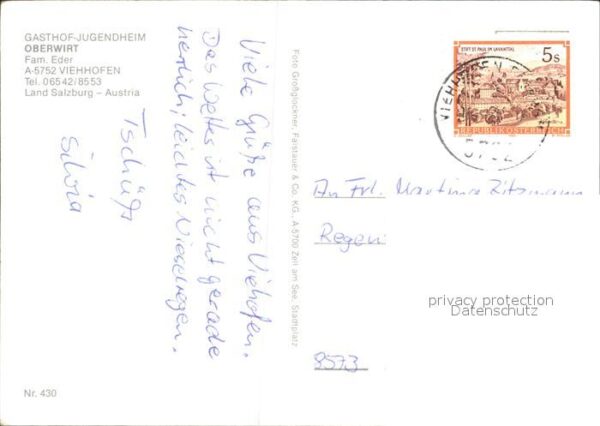 GASTHOF-JUGENDHEIM
OBERWIRT
Fam. Eder
A-5752 VIEHHOFEN
Tel. 06542/8553
Land Salzburg – Austria
Viele Grüße aus Viehofen.
Das Wetter ist nicht gerade
herrlich; leichtes Nieselregen.
Tschüß
Silvia
Foto Großglockner, Faistauer & Co. KG., A-5700 Zell am See, Stadtplatz
STIFT ST. PAUL IM LAVANTTAL
5 S
REPUBLIK ÖSTERREICH
An Frl. Martina Zitzmann
Regen
privacy protection
Datenschutz
Nr. 430